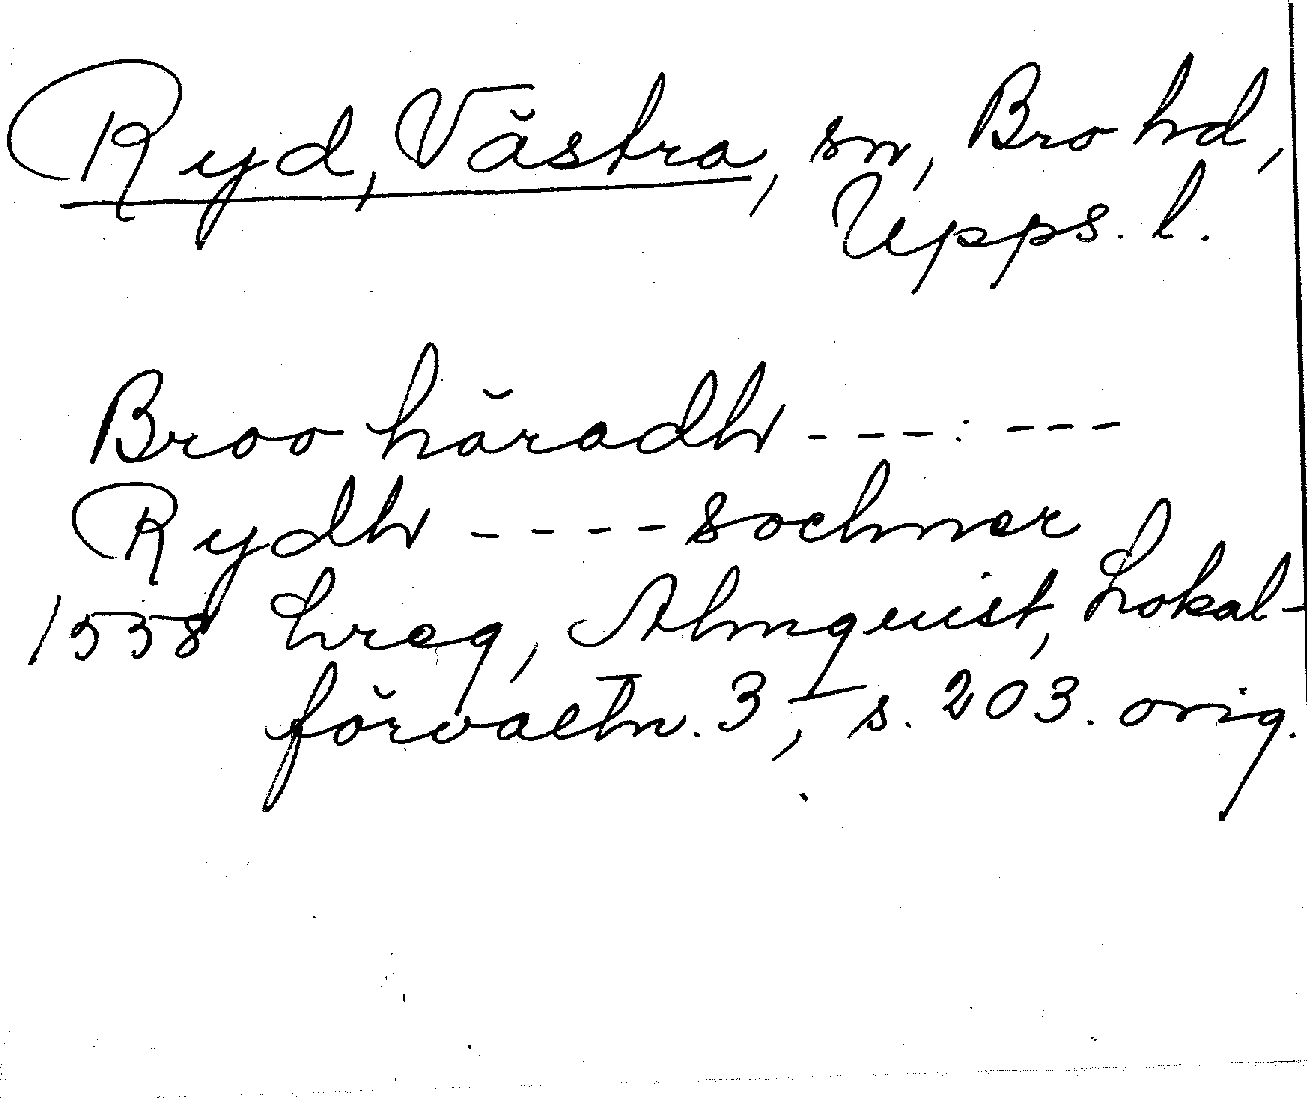 Ryd, Västra, sn, Bro hd,
Upps. l.
Broo häradh ---:---
Rydh ---- sochner
1558 Lreg, Almquist, Lokal-
förvaltn. 3, s. 203. orig.